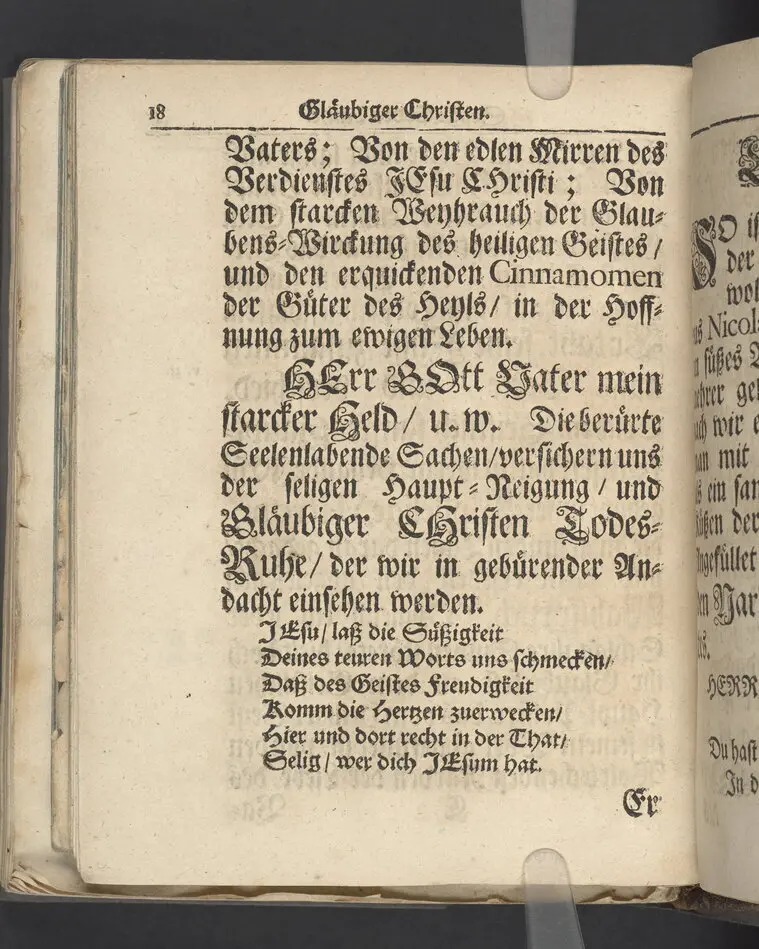 18 Gläubiger Christen.
Vaters; Von den edlen Mirren des
Verdienstes JEsu CHristi; Von
dem starcken Weyhrauch der Glau-
bens-Wirckung des heiligen Geistes/
und den erquickenden Cinnamomen
der Güter des Heyls/ in der Hoff-
nung zum ewigen Leben.
HErr GOtt Vater mein
starcker Held/ u. w. Die berürte
Seelenlabende Sachen/versichern uns
der seligen Haupt-Neigung/ und
Gläubiger CHristen Todes-
Ruhe/ der wir in gebürender An-
dacht einsehen werden.
JEsu/ laß die Süßigkeit
Deines teuren Worts uns schmecken/
Daß des Geistes Freudigkeit
Komm die Hertzen zuerwecken/
Hier und dort recht in der That/
Selig/ wer dich JEsum hat.
Er
SO
der
wol
Nicol
süßes
wir
mit
ein
der
HERR
Du hast
In